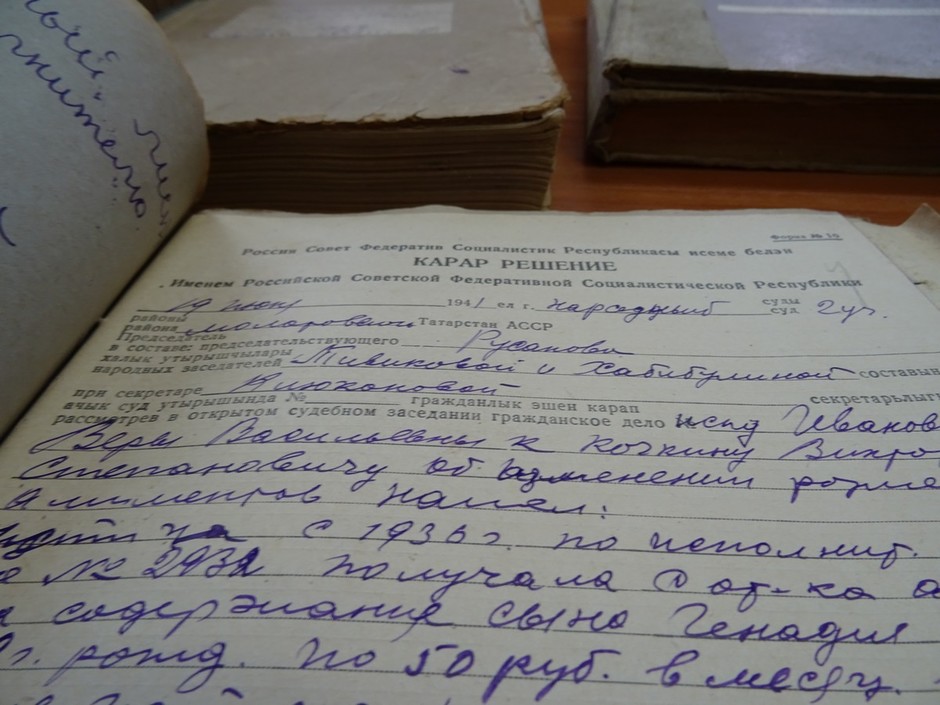 Форма № 10
Россия Совет Федератив Социалистик Республикасы исеме белэн
КАРАР РЕШЕНИЕ
Именем Российской Советской Федеративной Социалистической Республики
19 июня 1941 ел г. народный суды суд 2 уч.
районы
района Молотовский Татарстан АССР
Председатель
в составе: председательствующего Русанова
халык утырышчылары
народных заседателей и Хабибулиной составын
при секретаре Клюкановой секретарьлыг
ачык суд утырышында № гражданлык эшен карап
рассмотрев в открытом судебном заседании гражданское дело Иванов
Веры Васильевны к Кочкину
Степановичу об изменении разме
алиментов нашел:
с 1936 г. по исполнит.
№ 2932 получала с от-ка а
содержание сына Генадия
г. рожд. по 50 руб. в месяц.